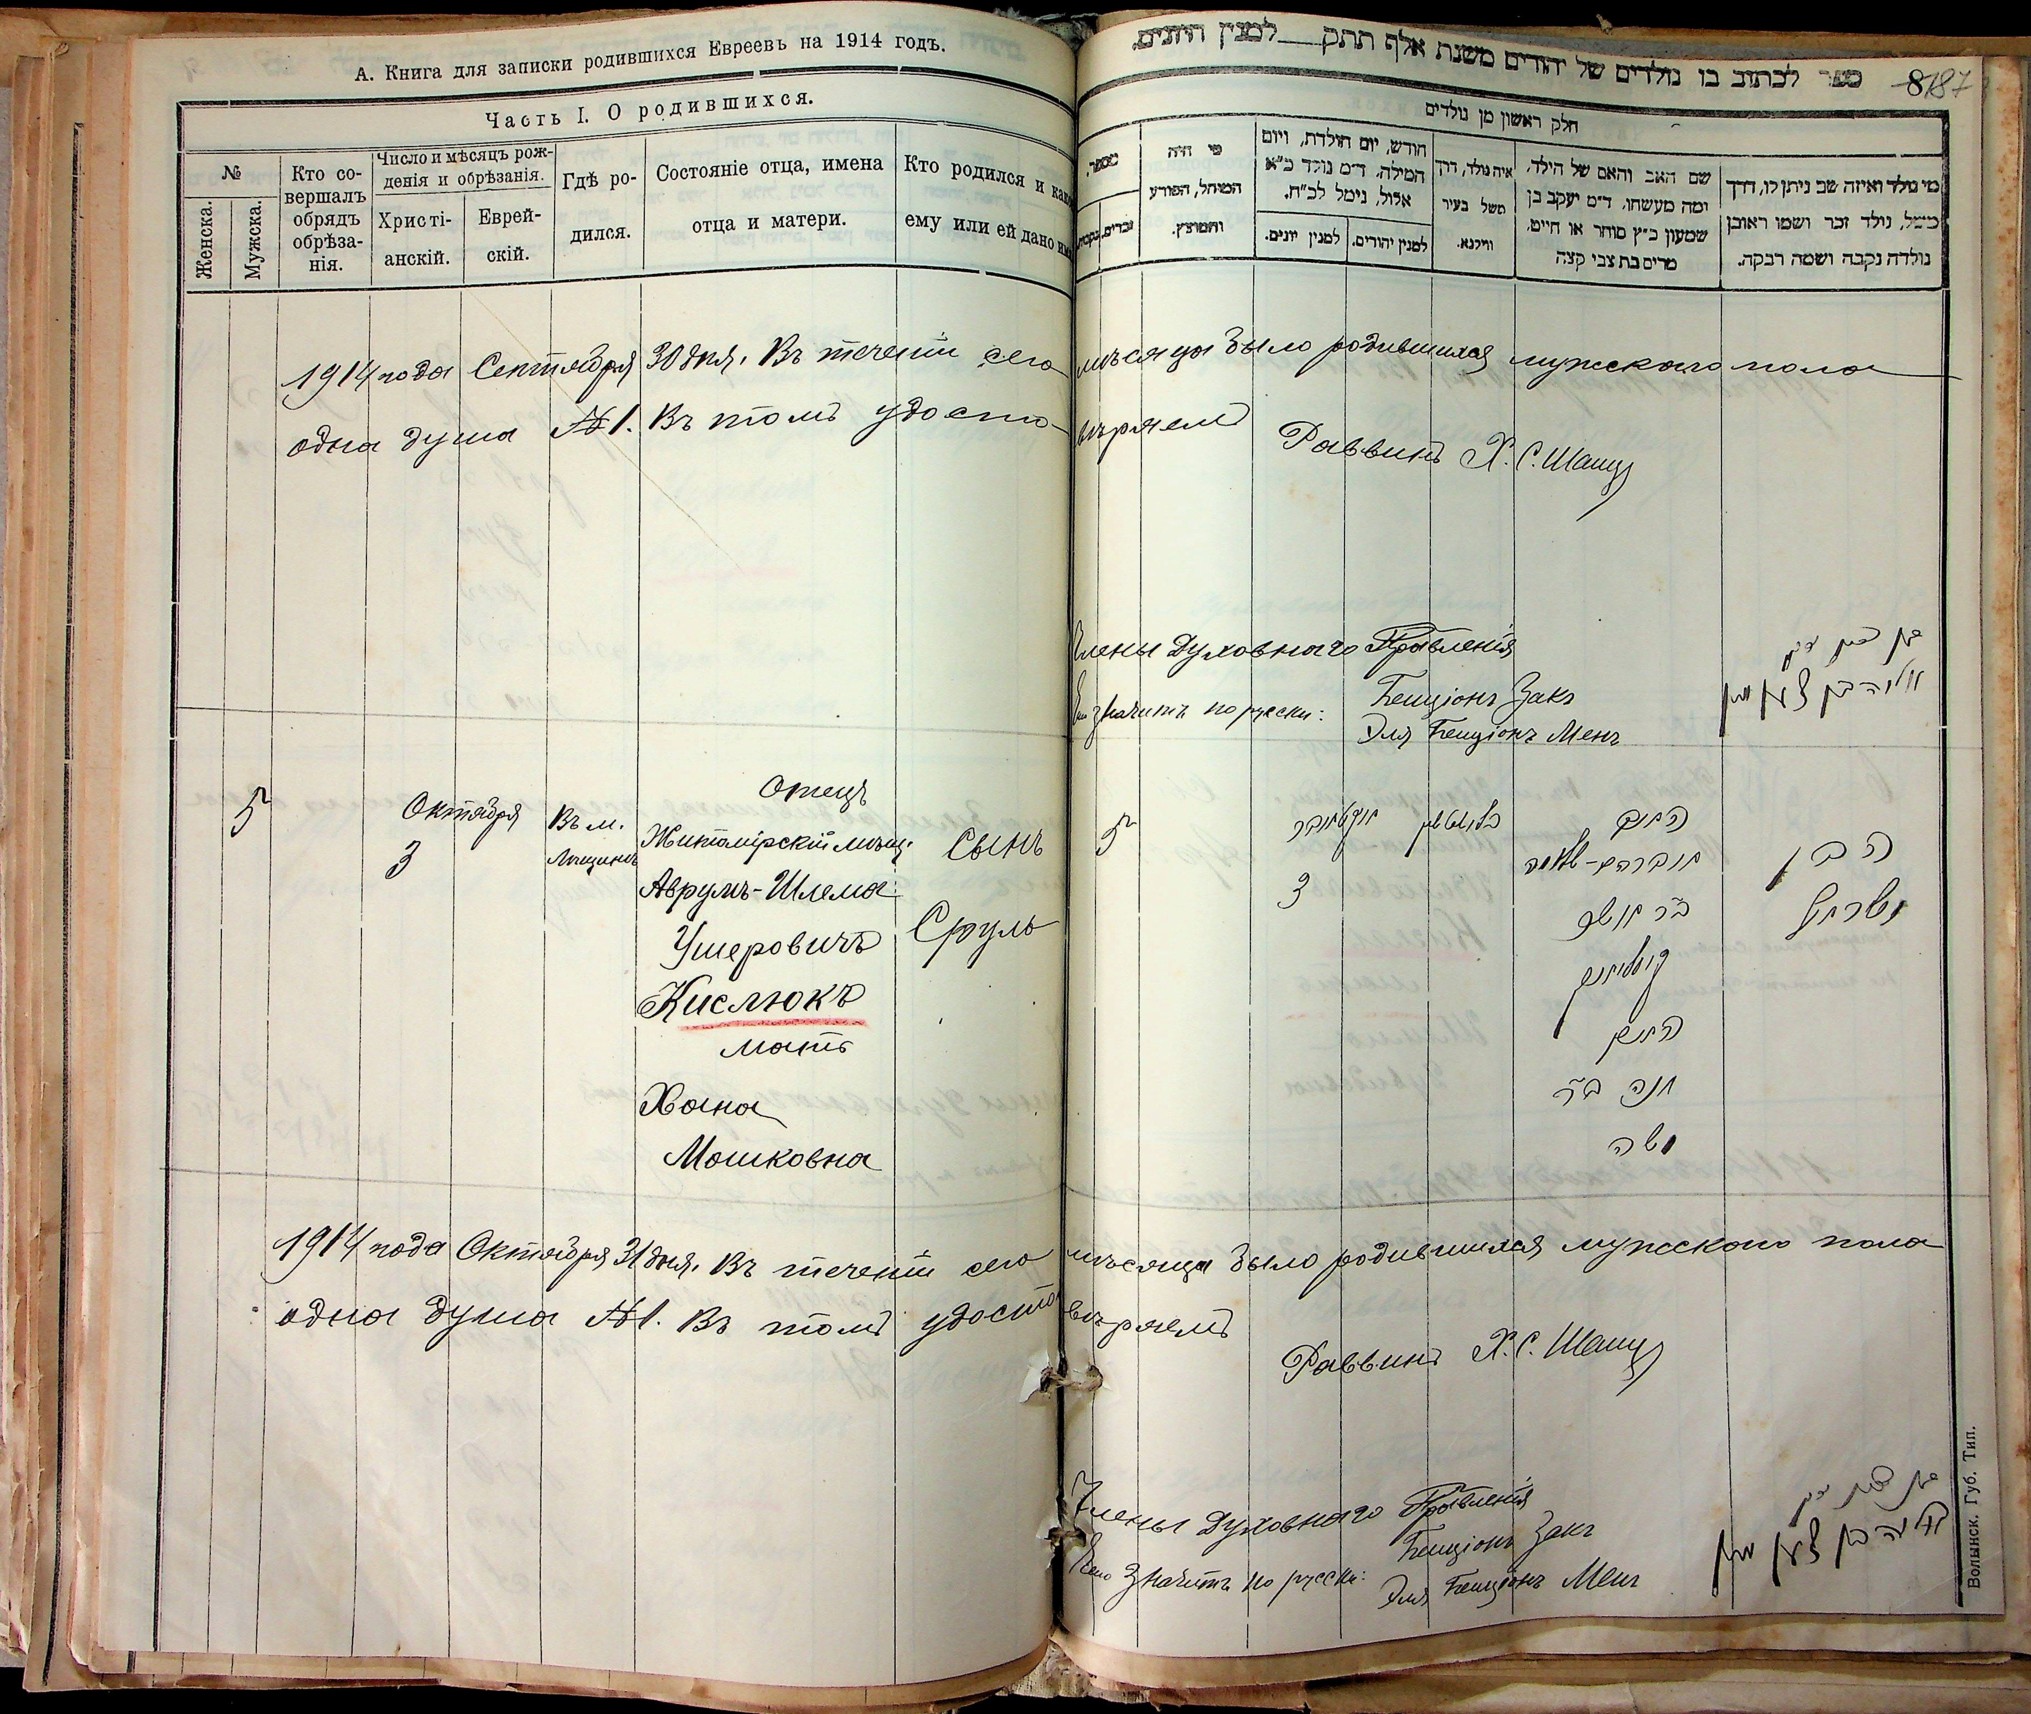 А. Книга для записки родившихся Евреевъ на 1914 годъ.
Часть I. О родившихся.
№
Женска.
Мужска.
Кто со-
вершалъ
обрядъ
обрѣза-
нія.
Число и мѣсяцъ рож-
денія и обрѣзанія.
Христі-
анскій.
Еврей-
скій.
Гдѣ ро-
дился.
Состояніе отца, имена
отца и матери.
Кто родился и како
ему или ей дано им
ספר לכתוב בו נולדים של יהודים משנת אלף תתק למנין היונים.
8187
חלק ראשון מן נולדים
מספר.
זכרים.
נקבות.
מי היה
המוהל, הפורע
והמוצץ.
חודש, יום הולדת, ויום
המילה. ד״מ נולד כ״א
אלול, נימל לכ״ח.
למנין יונים.
למנין יהודים.
איה נולד, דרך
משל בעיר
ווילנא.
שם האב והאם של הילד,
ומה מעשהו. ד״מ יעקב בן
שמעון כ״ץ סוחר או חייט,
מרים בת צבי קצה
מי נולד ואיזה שם ניתן לו, דרך
משל, נולד זכר ושמו ראובן
נולדה נקבה ושמה רבקה.
1914 года Сентября 30 дня. Въ теченіи сего мѣсяца было родившихся мужского пола
одна душа №1. Въ томъ удосто-вѣряемъ
Раввинъ Х. С. Шацъ
Члены Духовнаго Правленія
Бенціонъ Закъ
значитъ по русски:
Эля Бенціонъ Менъ
5
Октября
3
Въ м.
Отецъ
Житомірскій мѣщ.
Аврумъ-Шлема
Ушеровичъ
Кислюкъ
Мать
Хана
Мошковна
Сынъ
Сруль
5
אקטאבר
3
האב
אברהם-שלמה
ב״ר אשר
קיסליוק
האם
חנה ב״ר
משה
הבן
ישראל
1914 года Октября 31 дня. Въ теченіи сего мѣсяца было родившихся мужского пола
одна душа №1. Въ томъ удостовѣряемъ
Раввинъ Х. С. Шацъ
Члены Духовнаго Правленія
Бенціонъ Закъ
значитъ по русски:
Эля Бенціонъ Менъ
Волынск. Губ. Тип.